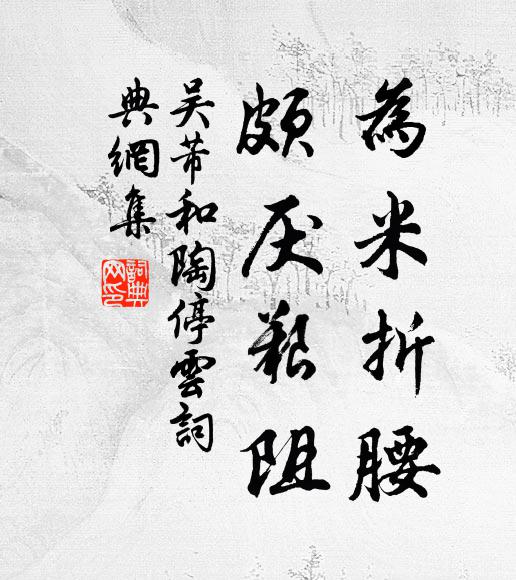 為米折腰
頗厌艱阻
吴芾和陶停雲詞
典網集
詞典
网印